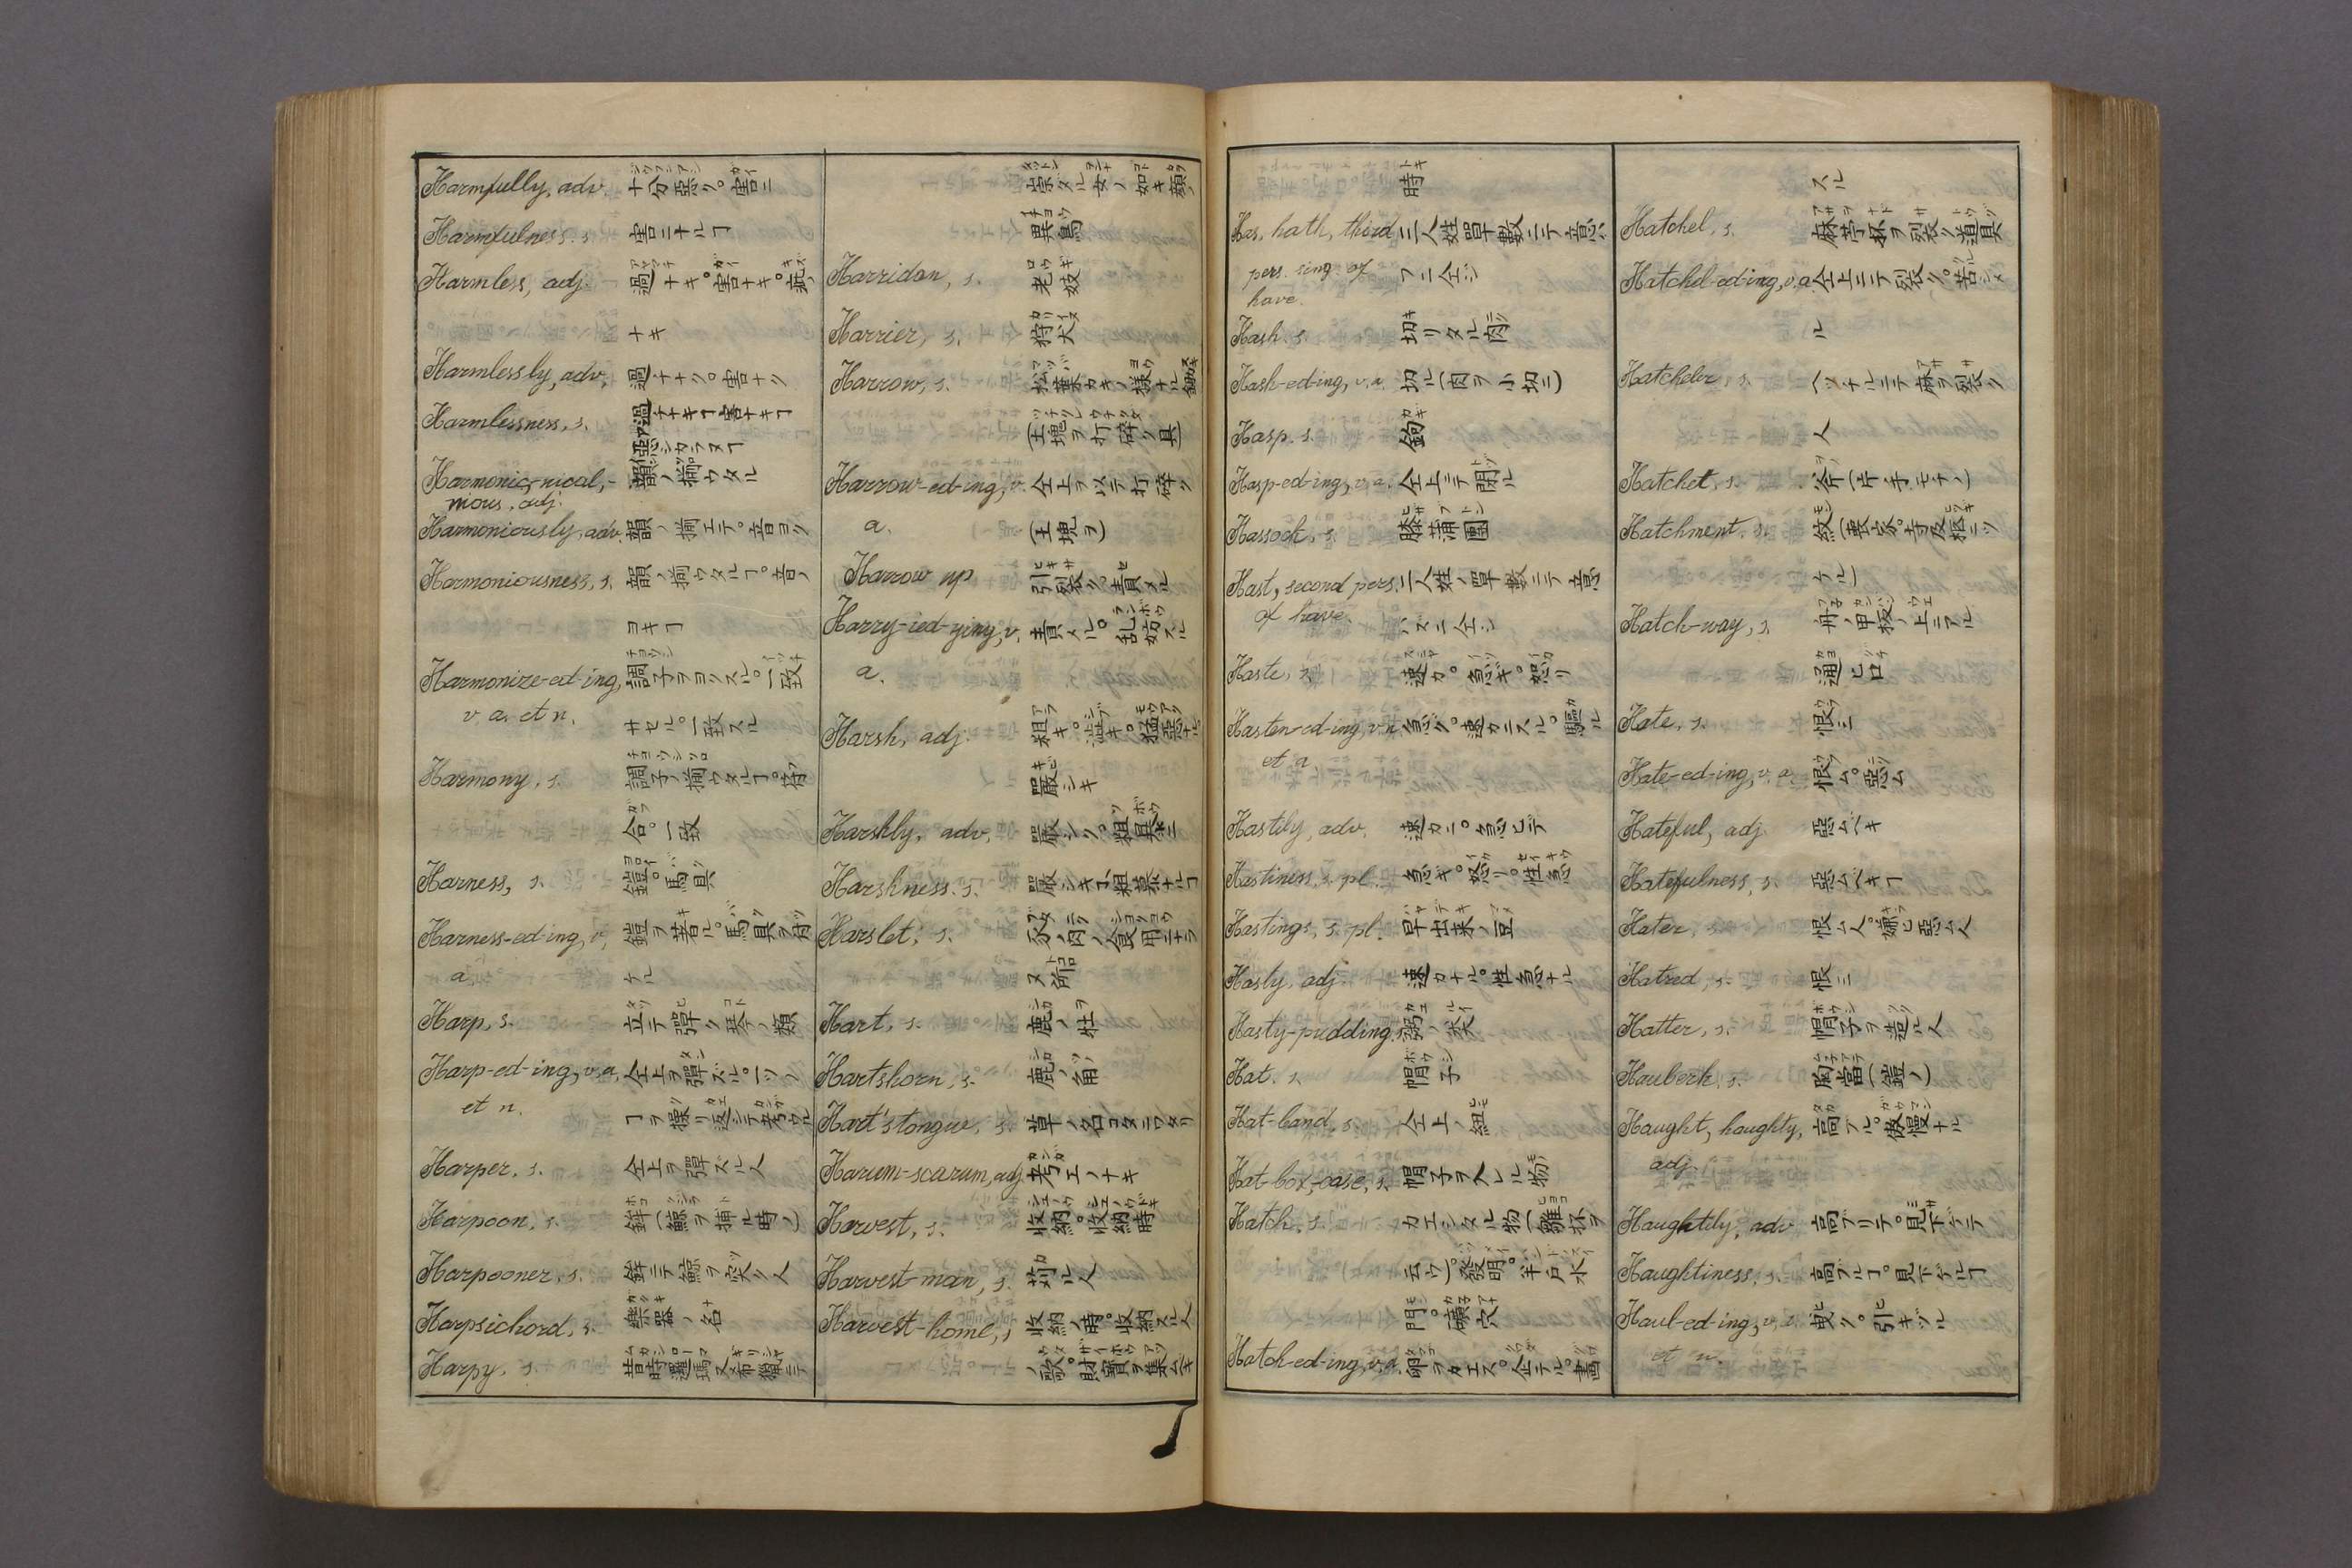 Harmfully, adv. 十分惡ク。害ニ
Harmfulness. s. 害ニナルヿ
Harmless, adj. 過ナキ。害ナキ。疵
ナキ
Harmlessly, adv. 過ナク。害ナク
Harmlessness, s. 過ナキヿ害ナキヿ
惡シカラヌヿ
Harmonic, nical,- 韻ノ揃ウタル
nious, adj.
Harmoniously, adv. 韻ノ揃エテ。音ヨク
Harmoniousness, s. 韻ノ揃ウタルヿ。音ノ
ヨキヿ
Harmonize-ed-ing, 調子ヲヨクスル。一致
v. a. et n. サセル。一致スル
Harmony, s. 調子ノ揃ウタルヿ。符
合。一致
Harness, s. 鎧。馬具
Harness-ed-ing, v. 鎧ヲ着ル。馬具ヲ付
a. ケル
Harp, s. 立テ彈ク琴ノ類
Harp-ed-ing, v. a. 仝上ヲ彈ズル。一ツノ
et n. ヿヲ操リ返シテ考ウル
Harper, s. 仝上ヲ彈ズル人
Harpoon, s. 鉾(鯨ヲ捕ル時ノ)
Harpooner, s. 鉾ニテ鯨ヲ突ク人
Harpsichord, s. 樂器ノ名
Harpy, s. 昔時邏瑪又希臘ニテ
崇タル女ノ如キ顔ノ
異鳥
Harridan, s. 老妓
Harrier, s. 狩犬
Harrow, s. 松葉カキノ様ナル鋤
(土塊ヲ打碎ク具)
Harrow-ed-ing, v. 仝上ヲ以テ打碎ク
a. (土塊ヲ)
Harrow up 引裂ク。責メル
Harry-ied-ying, v. 責メル。乱妨スル
a.
Harsh, adj. 粗キ。澁キ。猛惡ナル
嚴シキ
Harshly, adv. 嚴シク。粗暴ニ
Harshness. s. 嚴シキヿ。粗暴ナルヿ
Harslet, s. 豕ノ肉ノ食用ニナラ
ヌ所
Hart, s. 鹿ノ牡
Hartshorn, s. 鹿ノ角
Hart's tongue, s. 草ノ名コタニワタリ
Harum-scarum, adj. 考エノナキ
Harvest, s. 收納。收納時
Harvest-man, s. 苅ル人
Harvest-home, s. 收納ノ時。收納スル人
ノ歌。財寶ヲ集ムヘキ
時
Has, hath, third 三人姓單數ニテ意ハ
pers. sing. of フニ仝シ
have.
Hash. s. 切リタル肉
Hash-ed-ing, v. a. 切ル(肉ヲ小切ニ)
Hasp. s. 鉤
Hasp-ed-ing, v. a. 仝上ニテ閉ル
Hassock, s. 膝蒲團
Hast, second pers. 二人姓ノ單數ニテ意
of have. ハフニ仝シ
Haste, s. 速カ。急ギ。怒リ
Hasten-ed-ing, v. n. 急グ。速カニスル。驅ル
et a.
Hastily, adv. 速カニ。急ヒデ
Hastiness, s. pl. 急ギ。怒リ。性急
Hastings, s. pl. 早出来ノ豆
Hasty, adj. 速カナル。性急ナル
Hasty-pudding. s. 粥ノ类
Hat. s. 帽子
Hat-band, s. 仝上ノ紐
Hat-box, -case, s. 帽子ヲ入レル物
Hatch, s. カエシタル物(雛抔ヲ
云ウ)。發明。半戸水
門。礦穴
Hatch-ed-ing, v. a. 卵ヲカエス。企テル。畫
スル
Hatchel, s. 麻苧抔ヲ裂ク道具
Hatchel-ed-ing, v. a. 仝上ニテ裂ク。苦シメ
ル
Hatcheler, s. ヘッチルニテ麻ヲ裂ク
人
Hatchet, s. 斧(片手モチノ)
Hatchment. s. 紋(喪家。寺及柩ニツ
ケル)
Hatch-way, s. 舟ノ甲板ノ上ニアル
通ヒ口
Hate, s. 恨ミ
Hate-ed-ing, v. a. 恨ム。惡ム
Hateful, adj. 惡ムヘキ
Hatefulness, s. 惡ムヘキヿ
Hater, s. 恨ム人。嫌ヒ惡ム人
Hatred, s. 恨ミ
Hatter, s. 帽子ヲ造ル人
Hauberk, s. 胸當(鎧ノ)
Haught, haughty, 高ブル。傲慢ナル
adj.
Haughtily, adv. 高ブリテ。見下ゲテ
Haughtiness, s. 高ブルヿ。見下ゲルヿ
Haul-ed-ing, v. a. 曵ク。引キヅル
et n.